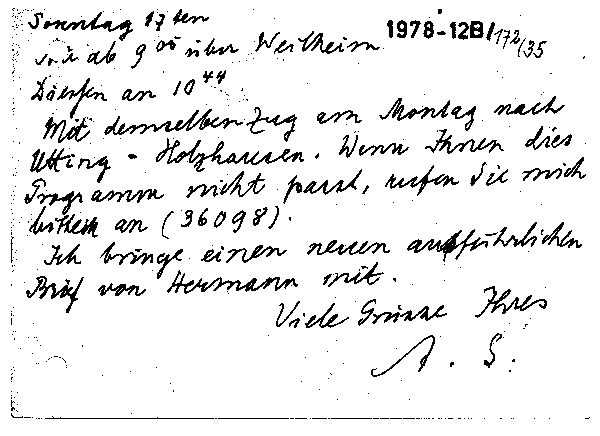 Sonntag 17ten
ab 9 05 über Weilheim
1978-12B/172/35
Diessen an 10 44
Mit demselben Zug am Montag nach
Utting - Holzhausen. Wenn Ihnen dies
Programm nicht passt, rufen Sie mich
bitte an (36098).
Ich bringe einen neuen ausführlichen
Brief von Hermann mit.
Viele Grüsse Ihres
A. S.